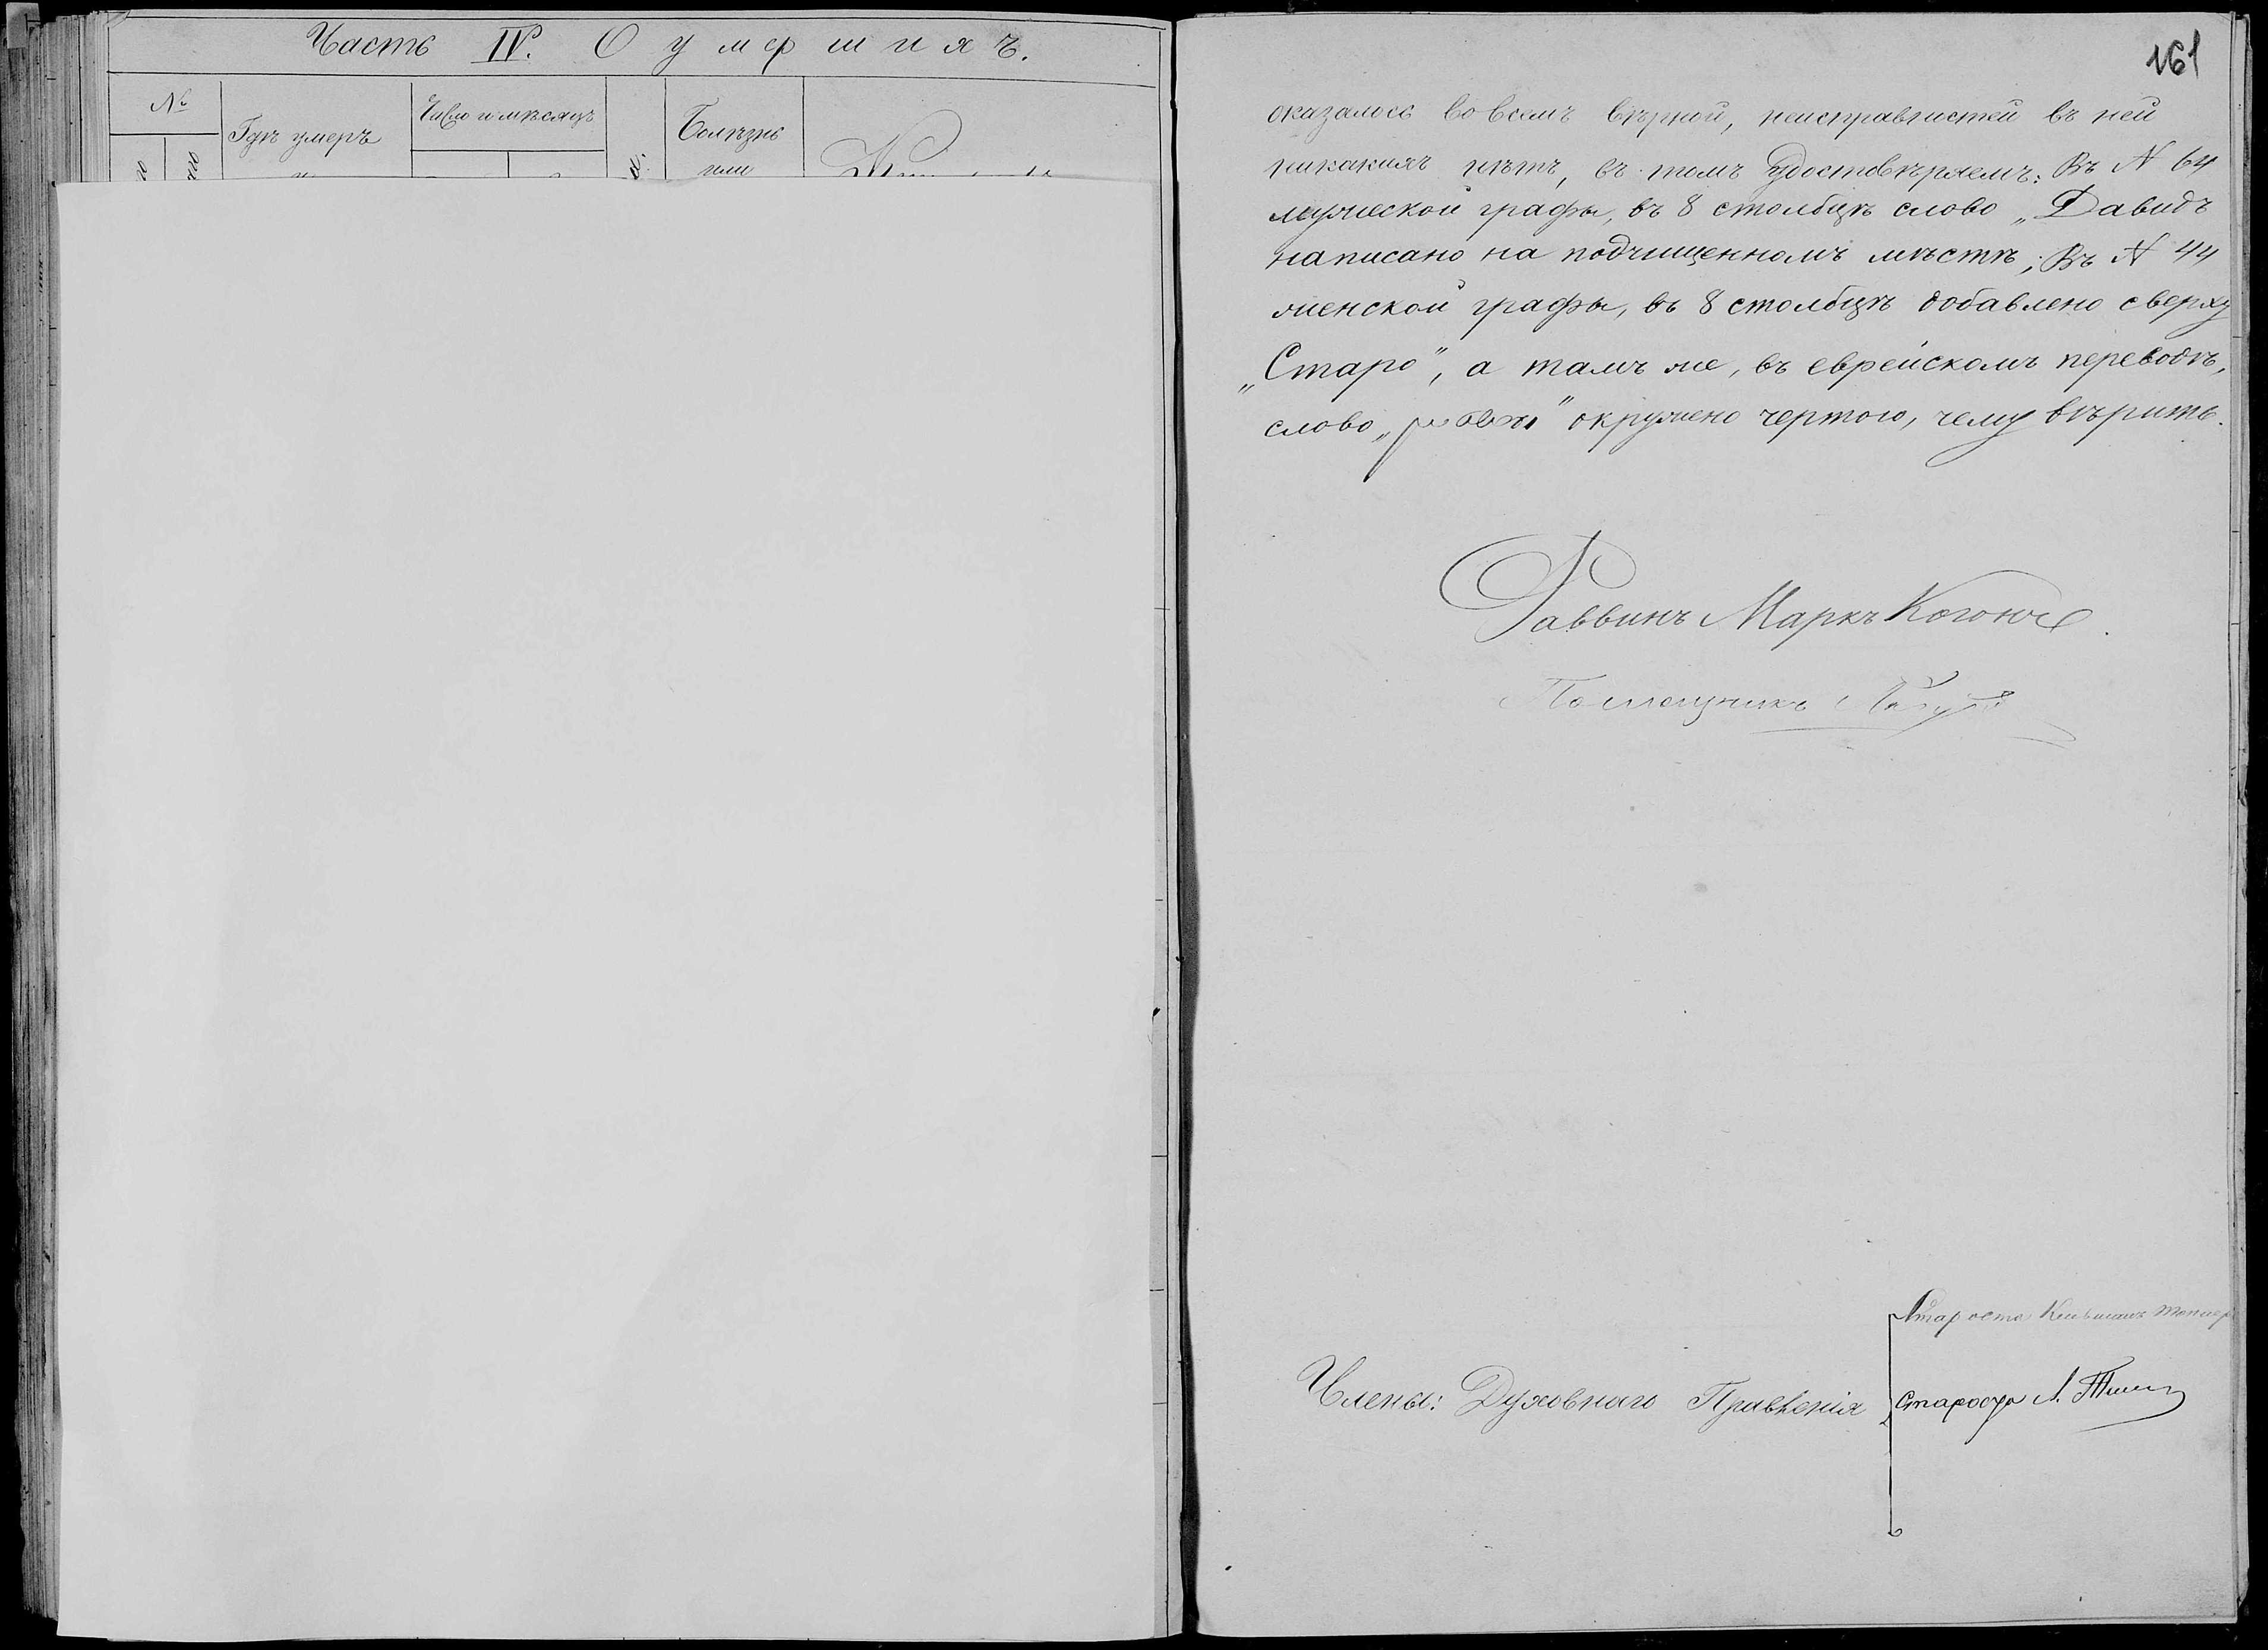 Часть IV. О умершихъ.
№
Гдѣ умеръ
Число и мѣсяцъ
Болѣзнь
или
161
оказалось во всемъ вѣрной, неисправностей въ ней
никакихъ нѣтъ, въ томъ удостовѣряемъ: Въ N 64
мужеской графы, въ 8 столбцѣ слово „Давидъ
написано на подчищенномъ мѣстѣ; Въ N 44
женской графы, въ 8 столбцѣ добавлено сверху
„Старо", а тамъ же, въ еврейскомъ переводѣ,
слово „ " окружено чертою, чему вѣрить.
Раввинъ Маркъ Когонъ.
Помощникъ
Староста
Члены: Духовнаго Правленія
Староста Л.